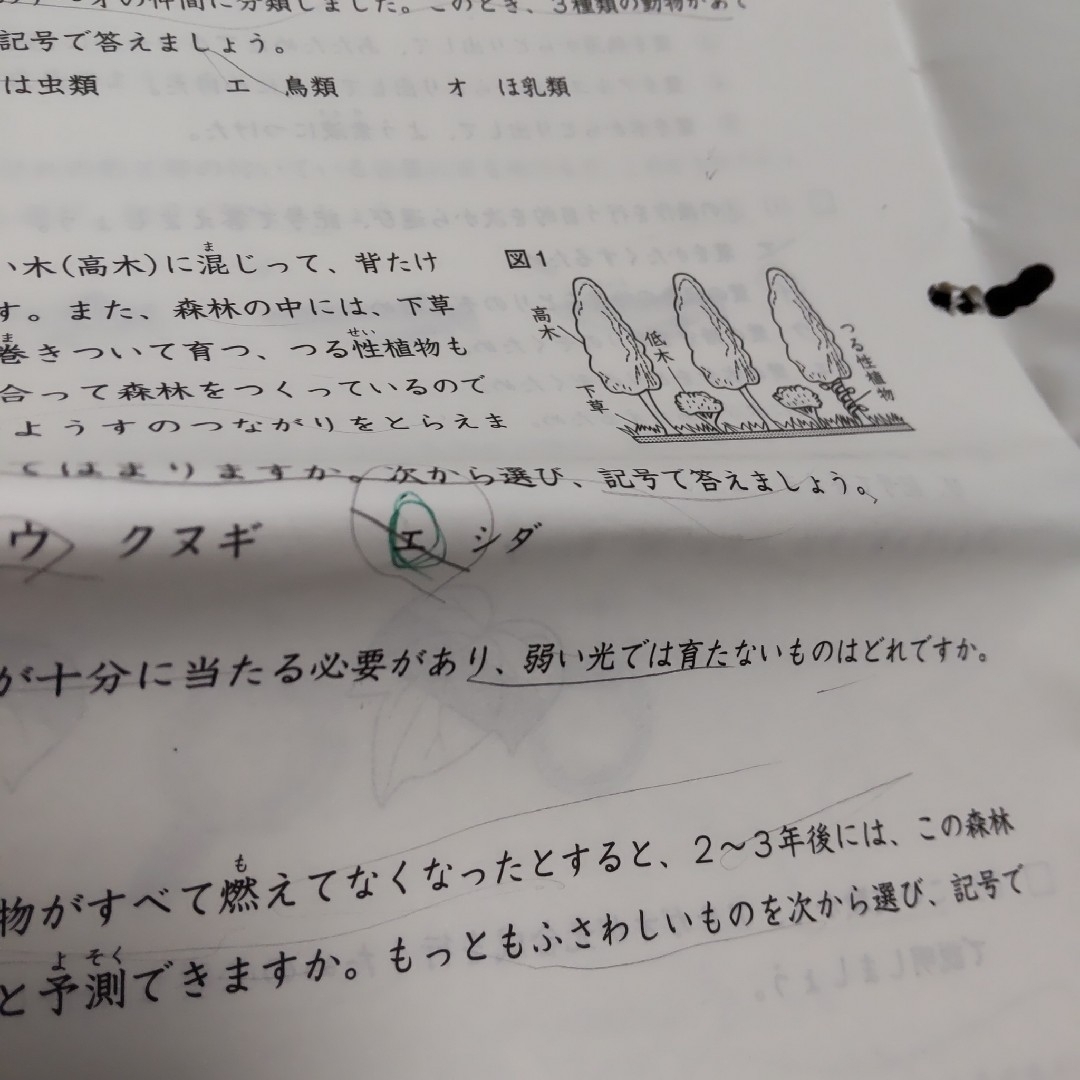 の仲間に分類しました。このとき、3種類の動物があて
記号で答えましょう。
は虫類　エ　鳥類　オ　ほ乳類
い木(高木)に混じって、背たけ
す。また、森林の中には、下草
巻きついて育つ、つる性植物も
合って森林をつくっているので
ようすのつながりをとらえま
図1
高木
低木
下草
つる性植物
てはまりますか。次から選び、記号で答えましょう。
ウ　クヌギ　エ　シダ
が十分に当たる必要があり、弱い光では育たないものはどれですか。
物がすべて燃えてなくなったとすると、2～3年後には、この森林
と予測できますか。もっともふさわしいものを次から選び、記号で